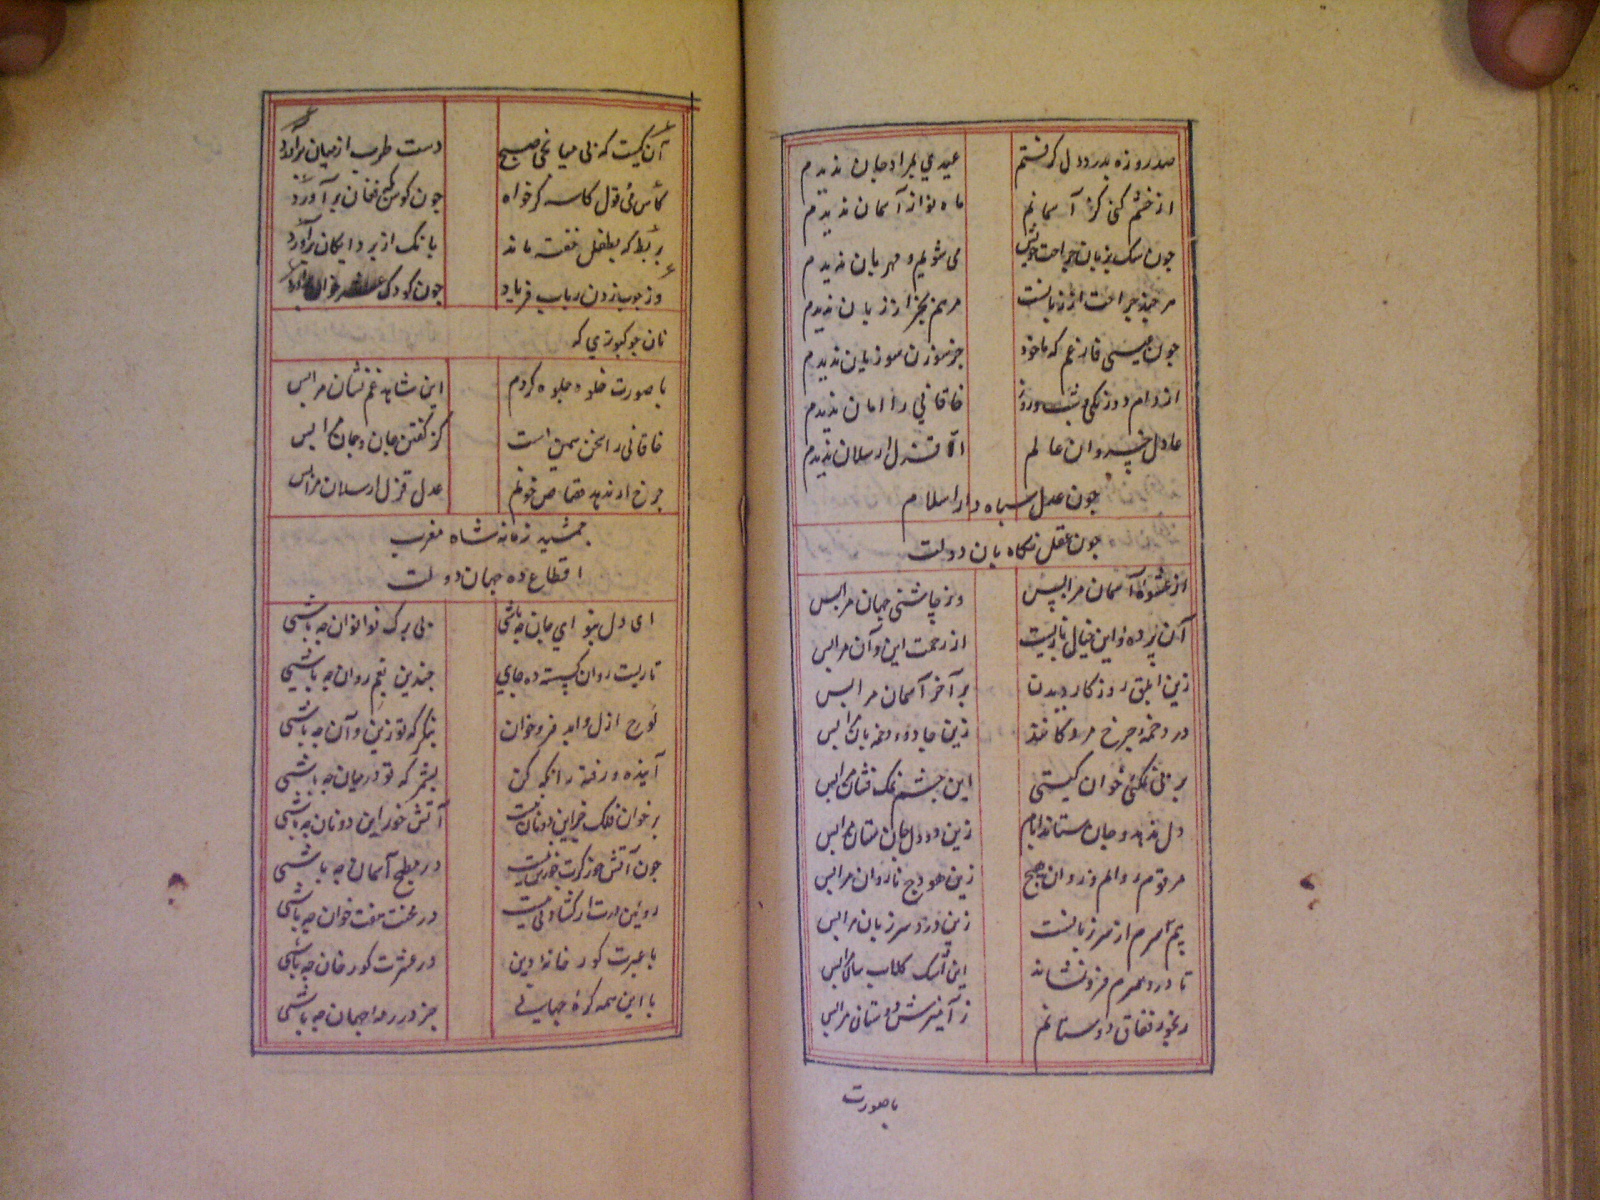 صد روزه بدرد دل گرفتم عیدی بمراد جان ندیدم
از خشم کنی کز آسمانم ماه نو از آسمان ندیدم
چون سک بزبان جراحت خویش می شویم و مهربان ندیدم
هر چند جراحت از زبانست مرهم بجز از زبان ندیدم
چون عیسی فارغم که با خود جز سوزن سوزیان ندیدم
از دام دورنگی شب و روز خاقانی را امان ندیدم
عادل خسروان عالم الا قزل ارسلان ندیدم
چون عدل سپاه دار اسلام
چون عقل نکاه بان دولت
از عشوهٔ آسمان مرا بس وز چاشنی جهان مرا بس
آن پرده و این خیال بازیست از زحمت این و آن مرا بس
زین ابلق روزکار دیدن بر آخر آسمان مرا بس
در دخمهٔ چرخ مردکانند زین جادوء دخمه بان مرا بس
بر بی نمکی خوان کیتی این چشم نمک فشان مرا بس
دل ندهد و جان ستاند ایام زین دوده جان ستان مرا بس
مرقوم روانم و روان هیچ زین هودج ناروان مرا بس
بیم سرم از سر زبانست زین درد سر زبان مرا بس
تا درد سرم فرو نشاند این اشک کلاب سان مرا بس
رنجور نفاق دوستانم ز آمیزش دوستان مرا بس
با صورت
آن کیست که بی میانجی صبح دست طرب از میان برآورد
کاس می و قول کاسه کر خواه چون کوس فغان برآورد
بربط که بطفل خفته ماند بانک از بر دایکان برآورد
وز چوب زدن رباب فریاد چون کودک
نان جو کبوتری که
با صورت خلوه جلوه کردم این شاهد غم نشان مرا بس
خاقانی را سخن همین است کز گفتن جان و جهان مرا بس
چرخ ار ندهد قصاص خونم عدل قزل ارسلان مرا بس
جمشید زمانه شاه مغرب
اقطاع ده جهان دولت
ای دل بنوای جان چه باشی بی برک نوا نوان چه باشی
تاریست روان کسسته ده جای چندین بغم روان چه باشی
لوح ازل و ابد فرو خوان بنکر که تو زین و آن چه باشی
آینده و رفته را نکه کن بشمر که تو در میان چه باشی
بر خوان فلک جز این دو نان نیست آتش خور این دو نان چه باشی
چون آتش خورشید در مطبخ آسمان چه باشی
رویین دژت ار کشادنی نیست در محنت هفت خوان چه باشی
با عبرت کورخانه این در عشرت کورخان چه باشی
با این همه کرهٔ جهانی جز در رمهٔ جهان چه باشی